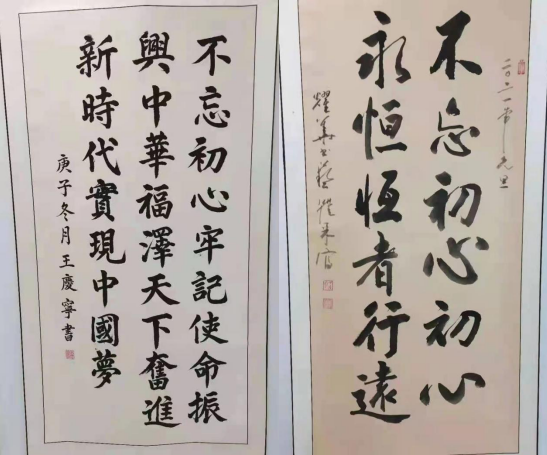 不忘初心牢記使命振
興中華福澤天下奮進
新時代實現中國夢
庚子冬月王慶寧書
二〇二一年元旦
不忘初心初心
永恒恒者行遠